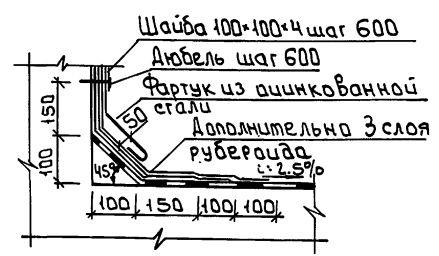 Шайба 100×100×4 шаг 600
Дюбель шаг 600
Фартук из оцинкованной
стали
Дополнительно 3 слоя
рубероида
i=2.5%
150
50
100
45°
100
150
100
100